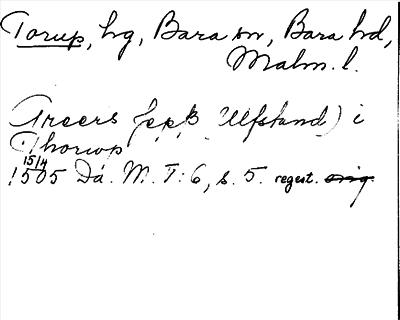 Torup, hg, Bara sn, Bara hd,
Malm. l.
Greers Jepss Ulfstand) i
Thorup
15/4
1505 Da. M. T: 6, s. 5. regest. orig.